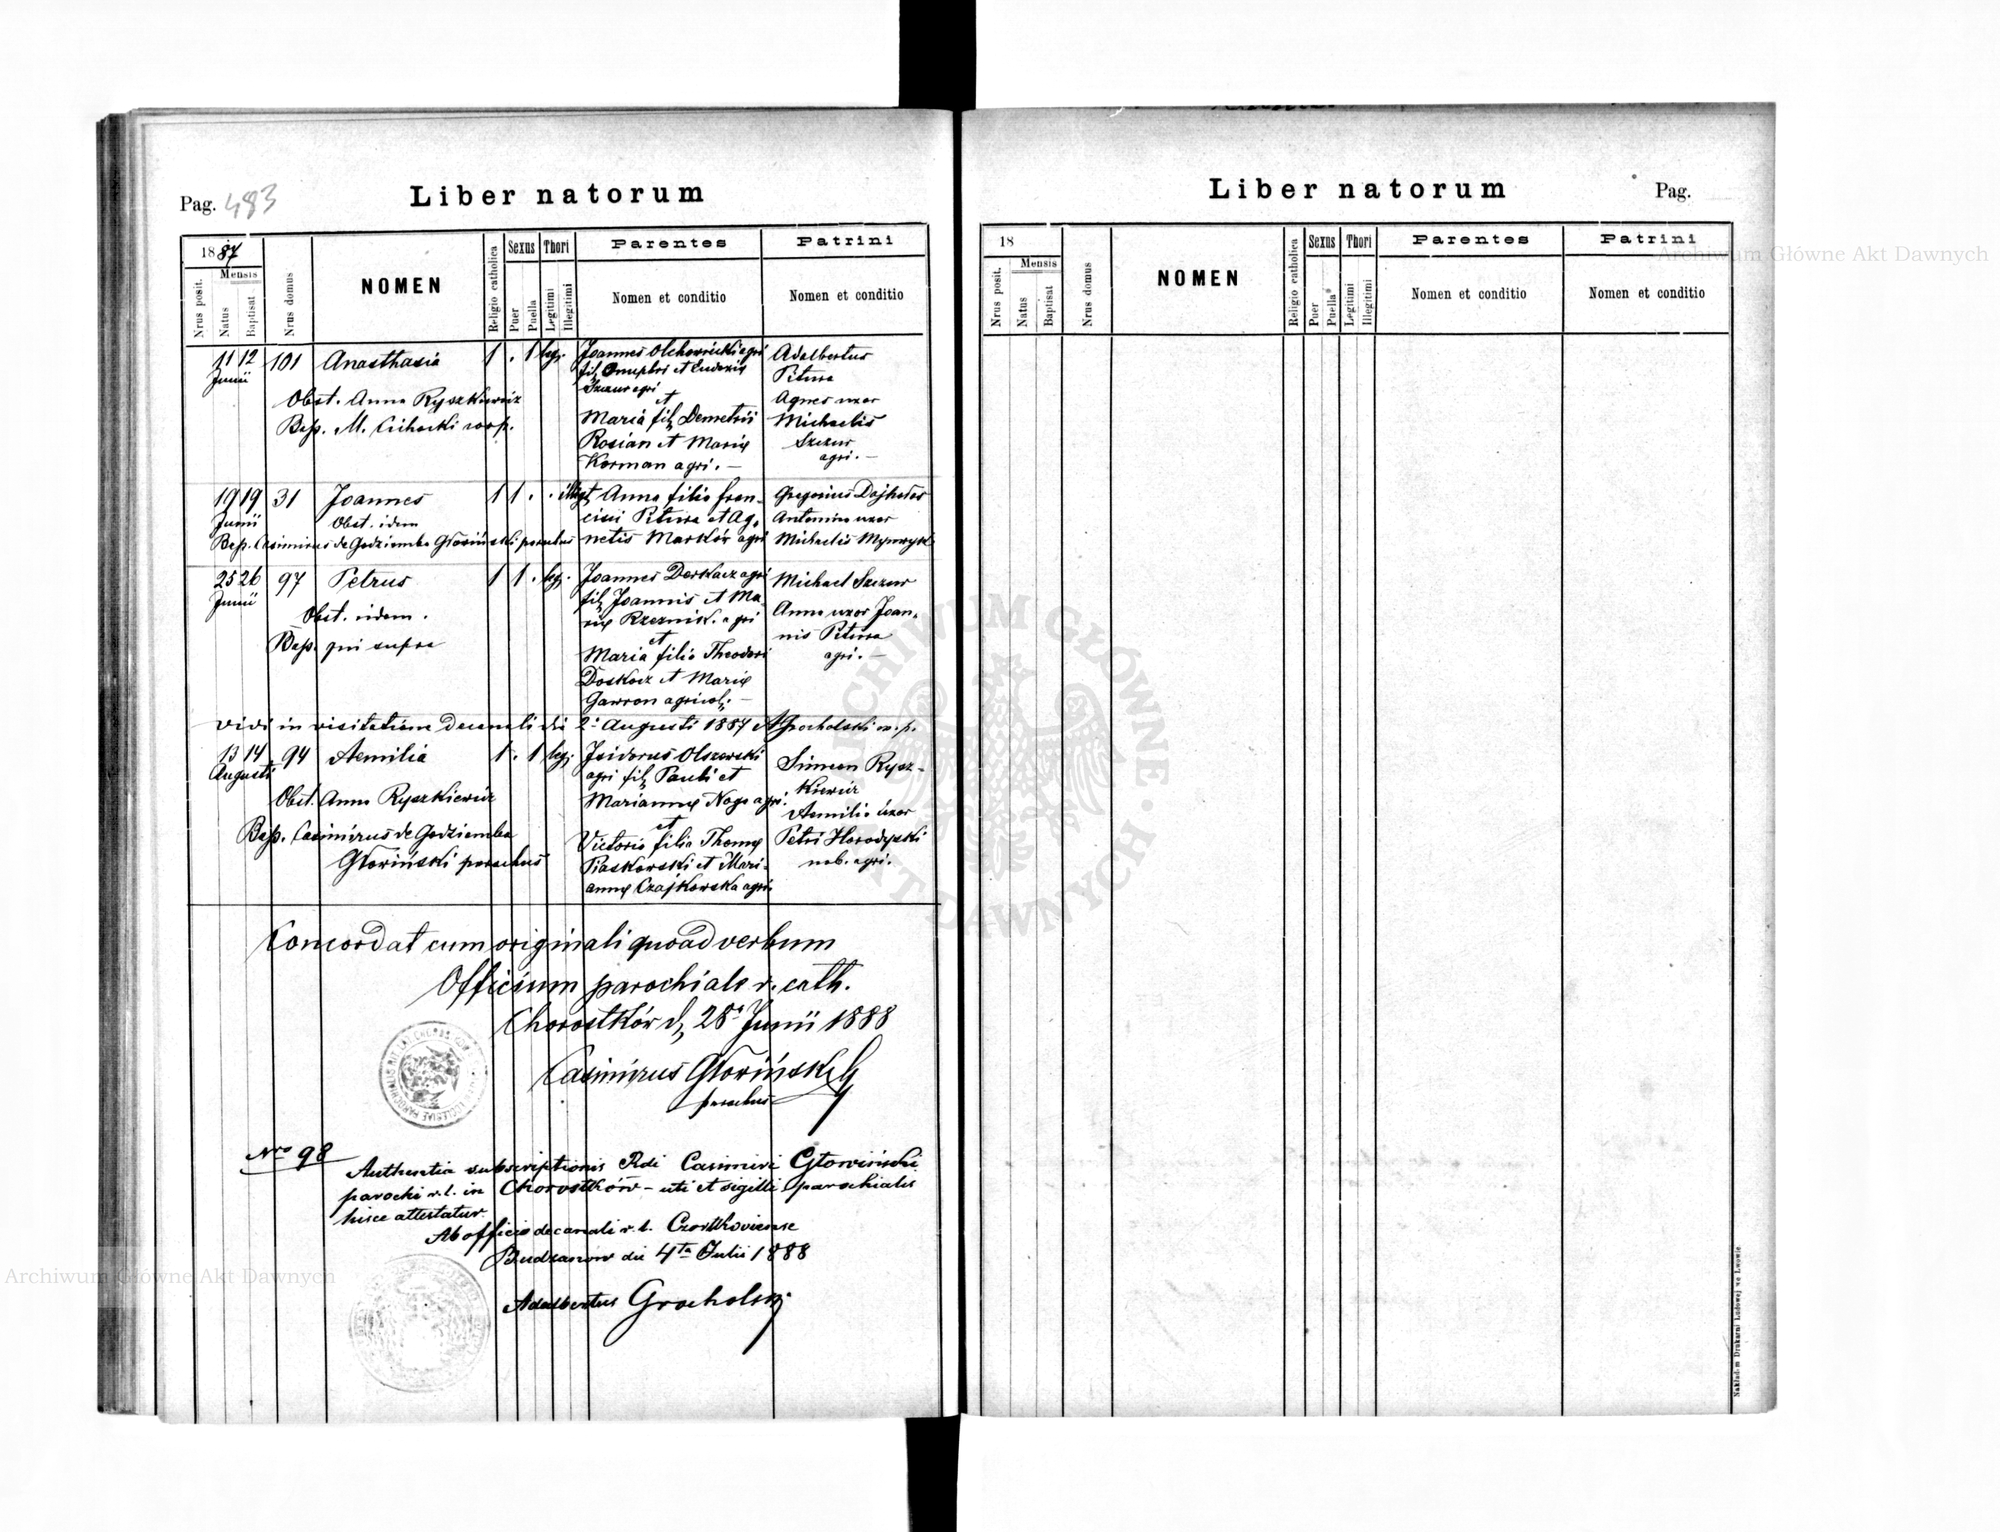 Pag. 483
Liber natorum
1887
Nrus posit.
Mensis
Natus
Baptisat
Nrus domus
NOMEN
Religio catholica
Sexus
Puer
Puella
Thori
Legitimi
Illegitimi
Parentes
Nomen et conditio
Patrini
Nomen et conditio
11 12 101 Anasthasia 1 . 1 leg.
Junii
Obst. Anna Ryszkiewicz
Bap. M. Cichocki coop.
Joannes Olchowiecki agri
fil. Onuphri et Eudoxiæ
Szczur agri
et
Maria fil. Demetrii
Rosian et Mariæ
Korman agri. —
Adalbertus
Pitura
Agnes uxor
Michaelis
Szczur
agri. —
19 19 31 Joannes 1 1 . . illegt.
Junii
Obst. idem
Bap. Casimirus de Godziemba Głowiński parochus
Anna filia Fran-
cisci Pitura et Ag-
netis Marków agri
Gregorius
Antonina uxor
Michaelis
25 26 97 Petrus 1 1 . leg.
Junii
Obst. idem.
Bap. qui supra
Joannes Derkacz agri
fil. Joannis et Ma-
riæ Rzeznik. agri
et
Maria filia Theodori
Doskocz et Mariæ
Gawron agricol. —
Michael Szczur
Anna uxor Joan-
nis Pitura
agri. —
Vidi in visitatione decanali die 2. Augusti 1887 AGrocholski m.p.
13 14 94 Aemilia 1 . 1 leg.
Augusti
Obst. Anna Ryszkiewicz
Bap. Casimirus de Godziemba
Głowiński parochus
Isidorus Olszewski
agri fil. Pauli et
Mariannæ Noga agri.
et
Victoria filia Thomæ
Piaskowski et Mari-
annæ Czajkowska agri.
Simeon Rysz-
kiewicz
Aemilia uxor
Petri Horodyski
nob. agri.
Concordat cum originali quoad verbum
Officium parochiale r. cath.
Chorostków d. 28. Junii 1888
Casimirus Głowiński
parochus
Nro 98
Authentia subscriptionis Rdi Casimiri Głowiński
parochi r. l. in Chorostków — uti et sigilli parochialis
hisce attestatur.
Ab officio decanali r. l. Czortkoviense
Budzanów die 4ta Julii 1888
Adalbertus Grocholski
Liber natorum
Pag.
18
Nrus posit.
Mensis
Natus
Baptisat
Nrus domus
NOMEN
Religio catholica
Sexus
Puer
Puella
Thori
Legitimi
Illegitimi
Parentes
Nomen et conditio
Patrini
Nomen et conditio
Nakładem Drukarni Ludowej we Lwowie
Archiwum Główne Akt Dawnych
Archiwum Główne Akt Dawnych
ARCHIWUM GŁÓWNE AKT DAWNYCH